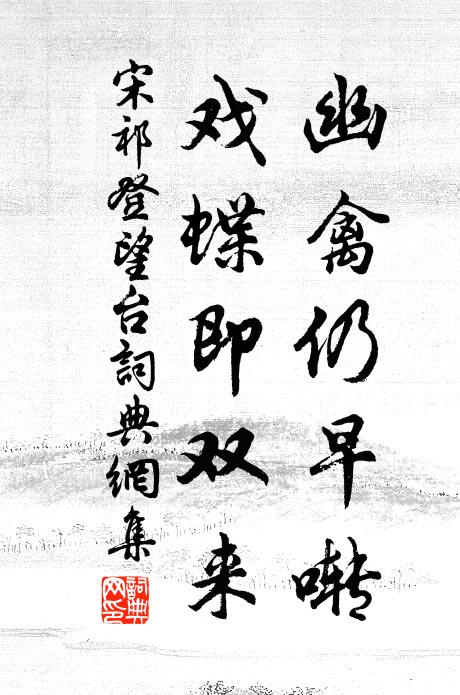 幽禽仍早啭
戏蝶即双来
宋祁登望台詞典網集
詞典